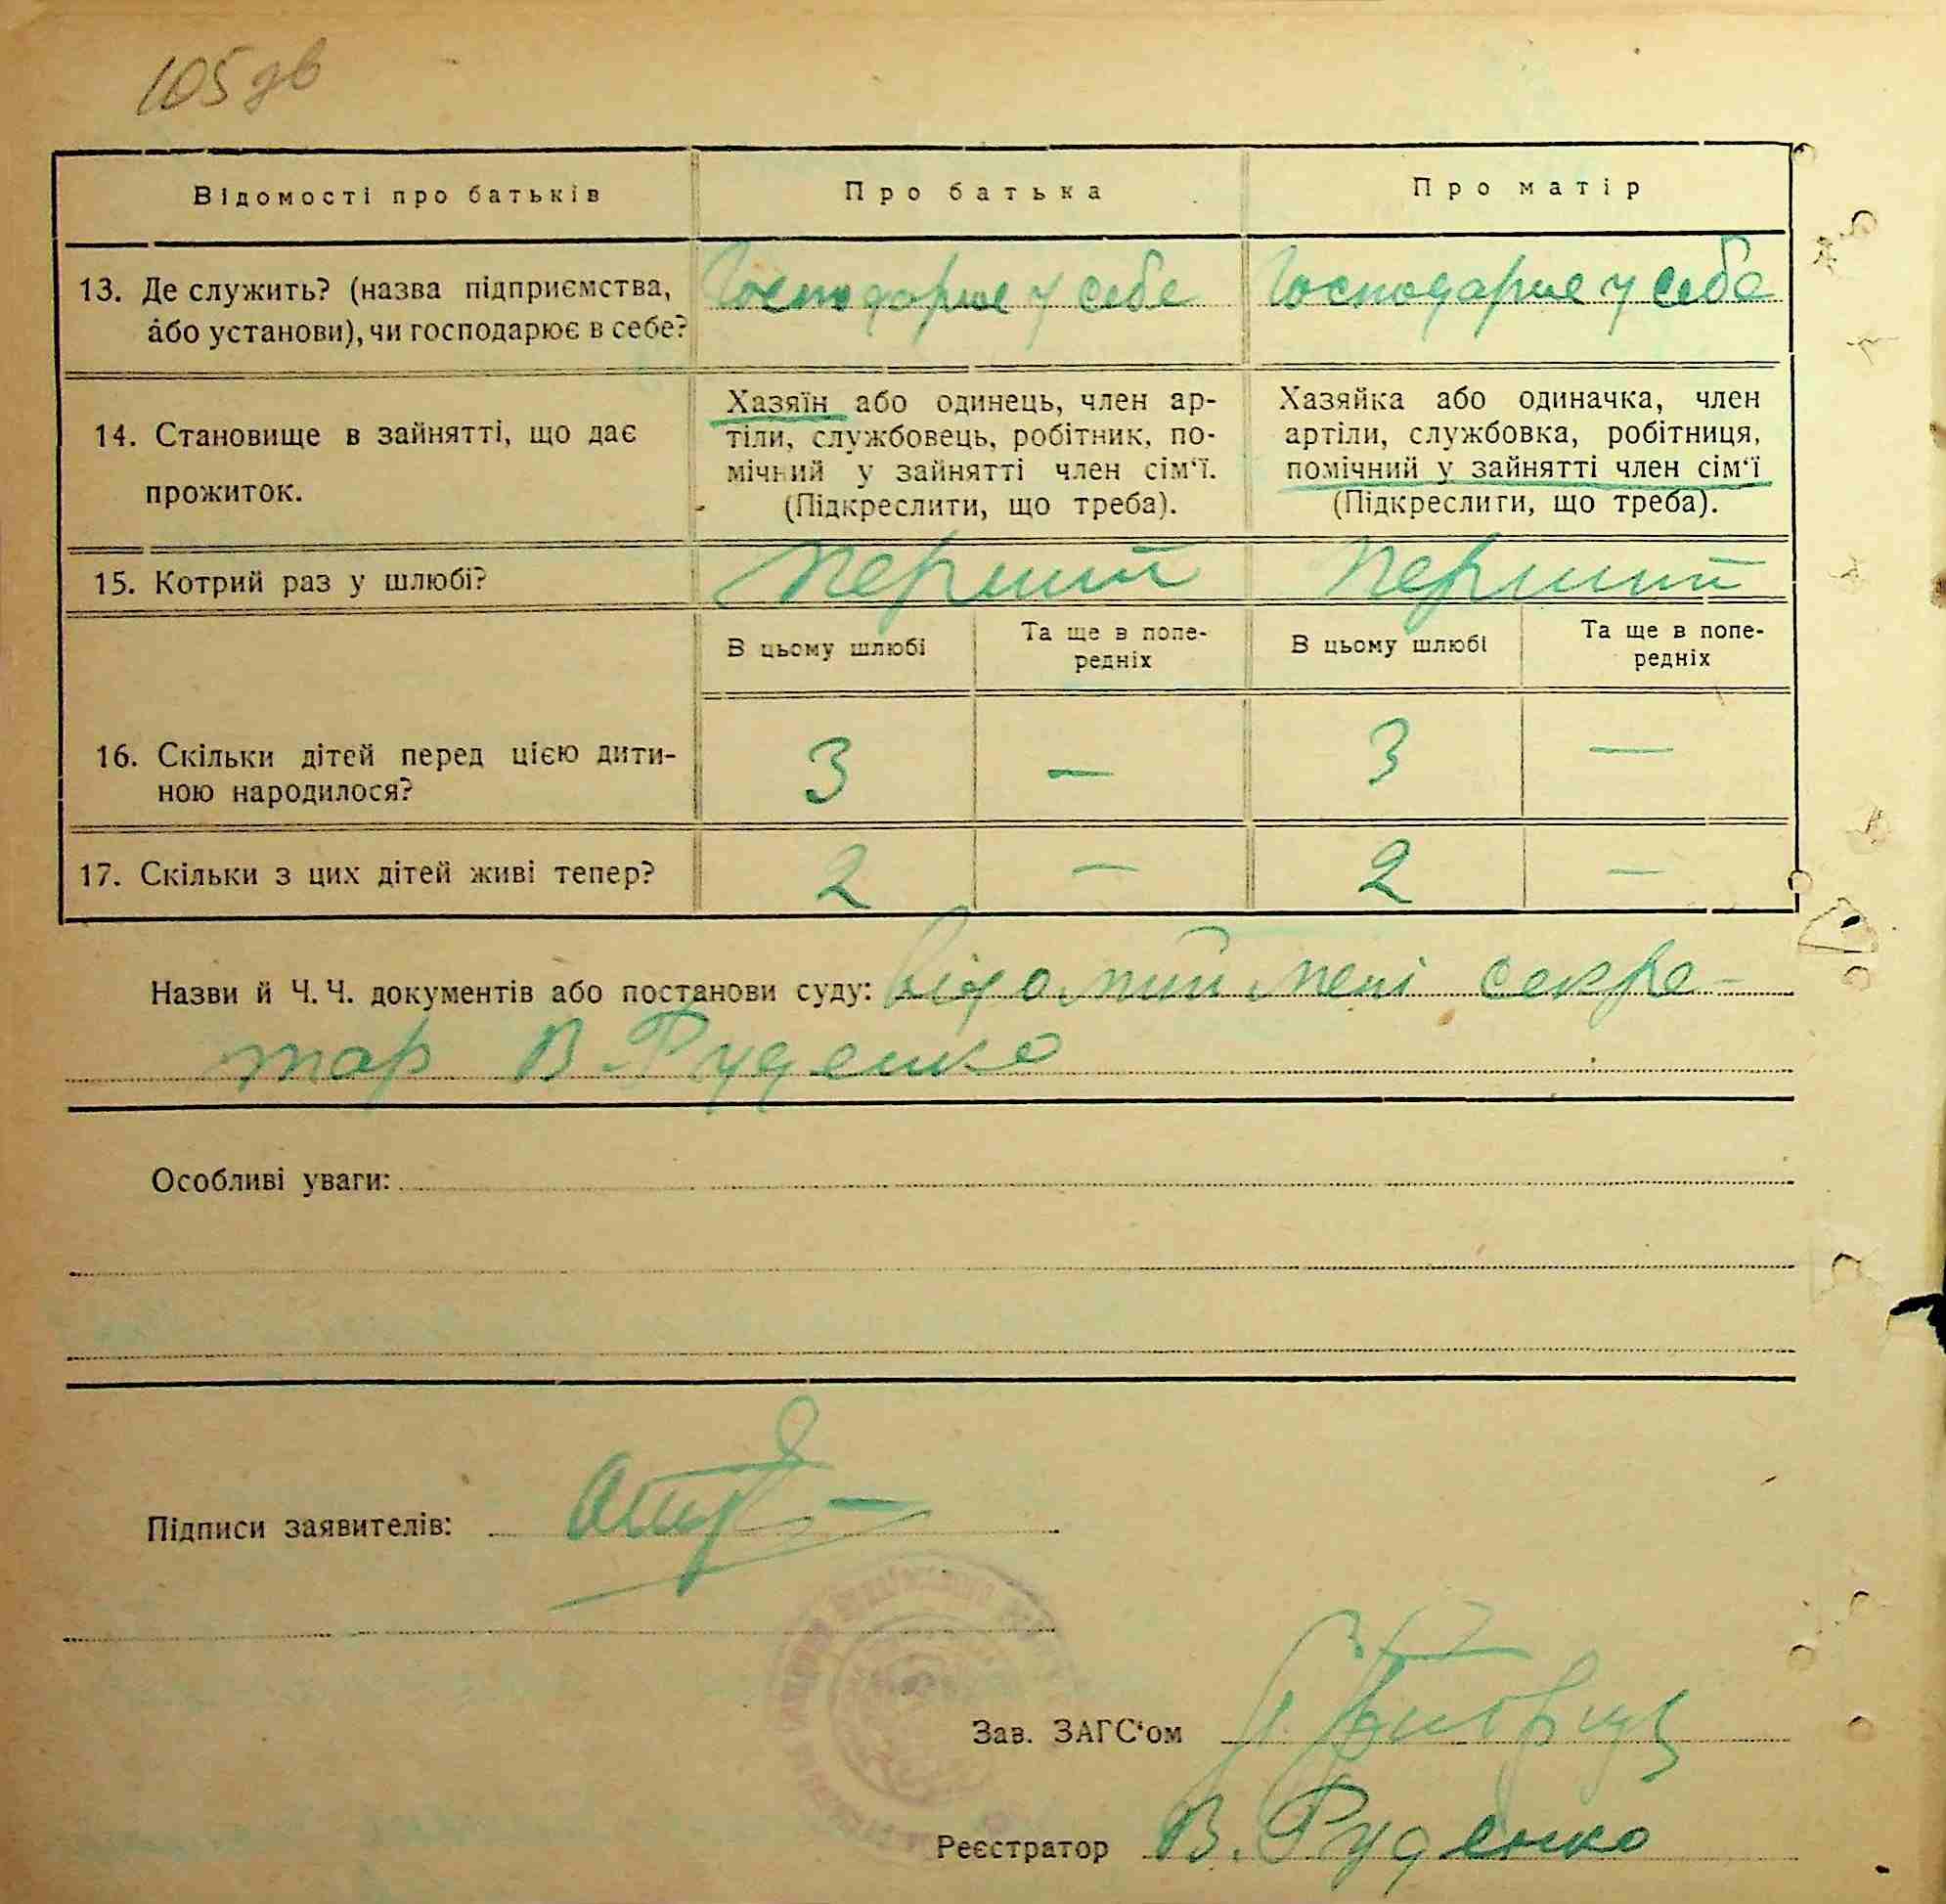 105 зв
Відомості про батьків
Про батька
Про матір
13. Де служить? (назва підприємства,
або установи), чи господарює в себе?
Господарює у себе
Господарює у себе
14. Становище в зайнятті, що дає
прожиток.
Хазяїн або одинець, член ар-
тіли, службовець, робітник, по-
мічний у зайнятті член сім'ї.
(Підкреслити, що треба).
Хазяйка або одиначка, член
артіли, службовка, робітниця,
помічний у зайнятті член сім'ї
(Підкреслити, що треба).
15. Котрий раз у шлюбі?
перший
перший
В цьому шлюбі
Та ще в попе-
редніх
В цьому шлюбі
Та ще в попе-
редніх
16. Скільки дітей перед цією дити-
ною народилося?
3 — 3 —
17. Скільки з цих дітей живі тепер?
2 — 2 —
Назви й Ч. Ч. документів або постанови суду: відомий мені секре-
тар В. Руденко
Особливі уваги:
Підписи заявителів:
Зав. ЗАГС'ом
Реєстратор В. Руденко